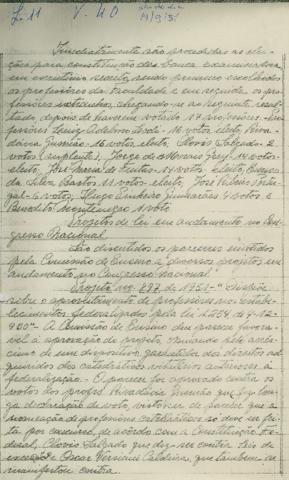 L. 11 V. 40
Imediatamente são procedidas as elei-
ções para constituição da banca examinadora
em escrutínio secreto, sendo primeiro escolhidos
os professores da Faculdade e em seguida os pro-
fessores estranhos, chegando-se ao seguinte resul-
tado, depois de haverem votado 17 professores:
fessores Luiz Adelmo 16 votos eleito
16 votos, eleito, Clovis Salgado - 2
votos (suplente). Jorge de Moraes 14 votos -
eleito, José Maria de Freitas - 14 votos eleito,
da Silva Bastos 11 votos - eleito, José
6 votos, Hugo Pinheiro Guimarães 4 votos e
Benedito Montenegro 1 voto
Projetos de lei em andamento no Con-
gresso Nacional.
São discutidos os pareceres emitidos
pela Comissão de Ensino a diversos projetos em
andamento no Congresso Nacional.
Projeto nº 897 de 1951 - "Dispõe
sobre o aproveitamento de professores nos estabe-
lecimentos federalizados pela lei 2.054 de 4-12-
950" - A Comissão de Ensino deu parecer favorá-
vel à aprovação do projeto, opinando pelo acrés-
cimo de um dispositivo dos direitos ad-
quiridos dos catedráticos anteriores à
federalização. O parecer foi aprovado contra os
votos dos profs. Rivadavia Gusmão que fez
declaração de voto de parecer que a
nomeação de professores catedráticos só deve ser fei-
ta por concurso, de acôrdo com a Constituição Fe-
deral, Clovis Salgado que diz ser contra leis de
exceção e Oscar Versiani Caldeira, que também se
manifestou contra.